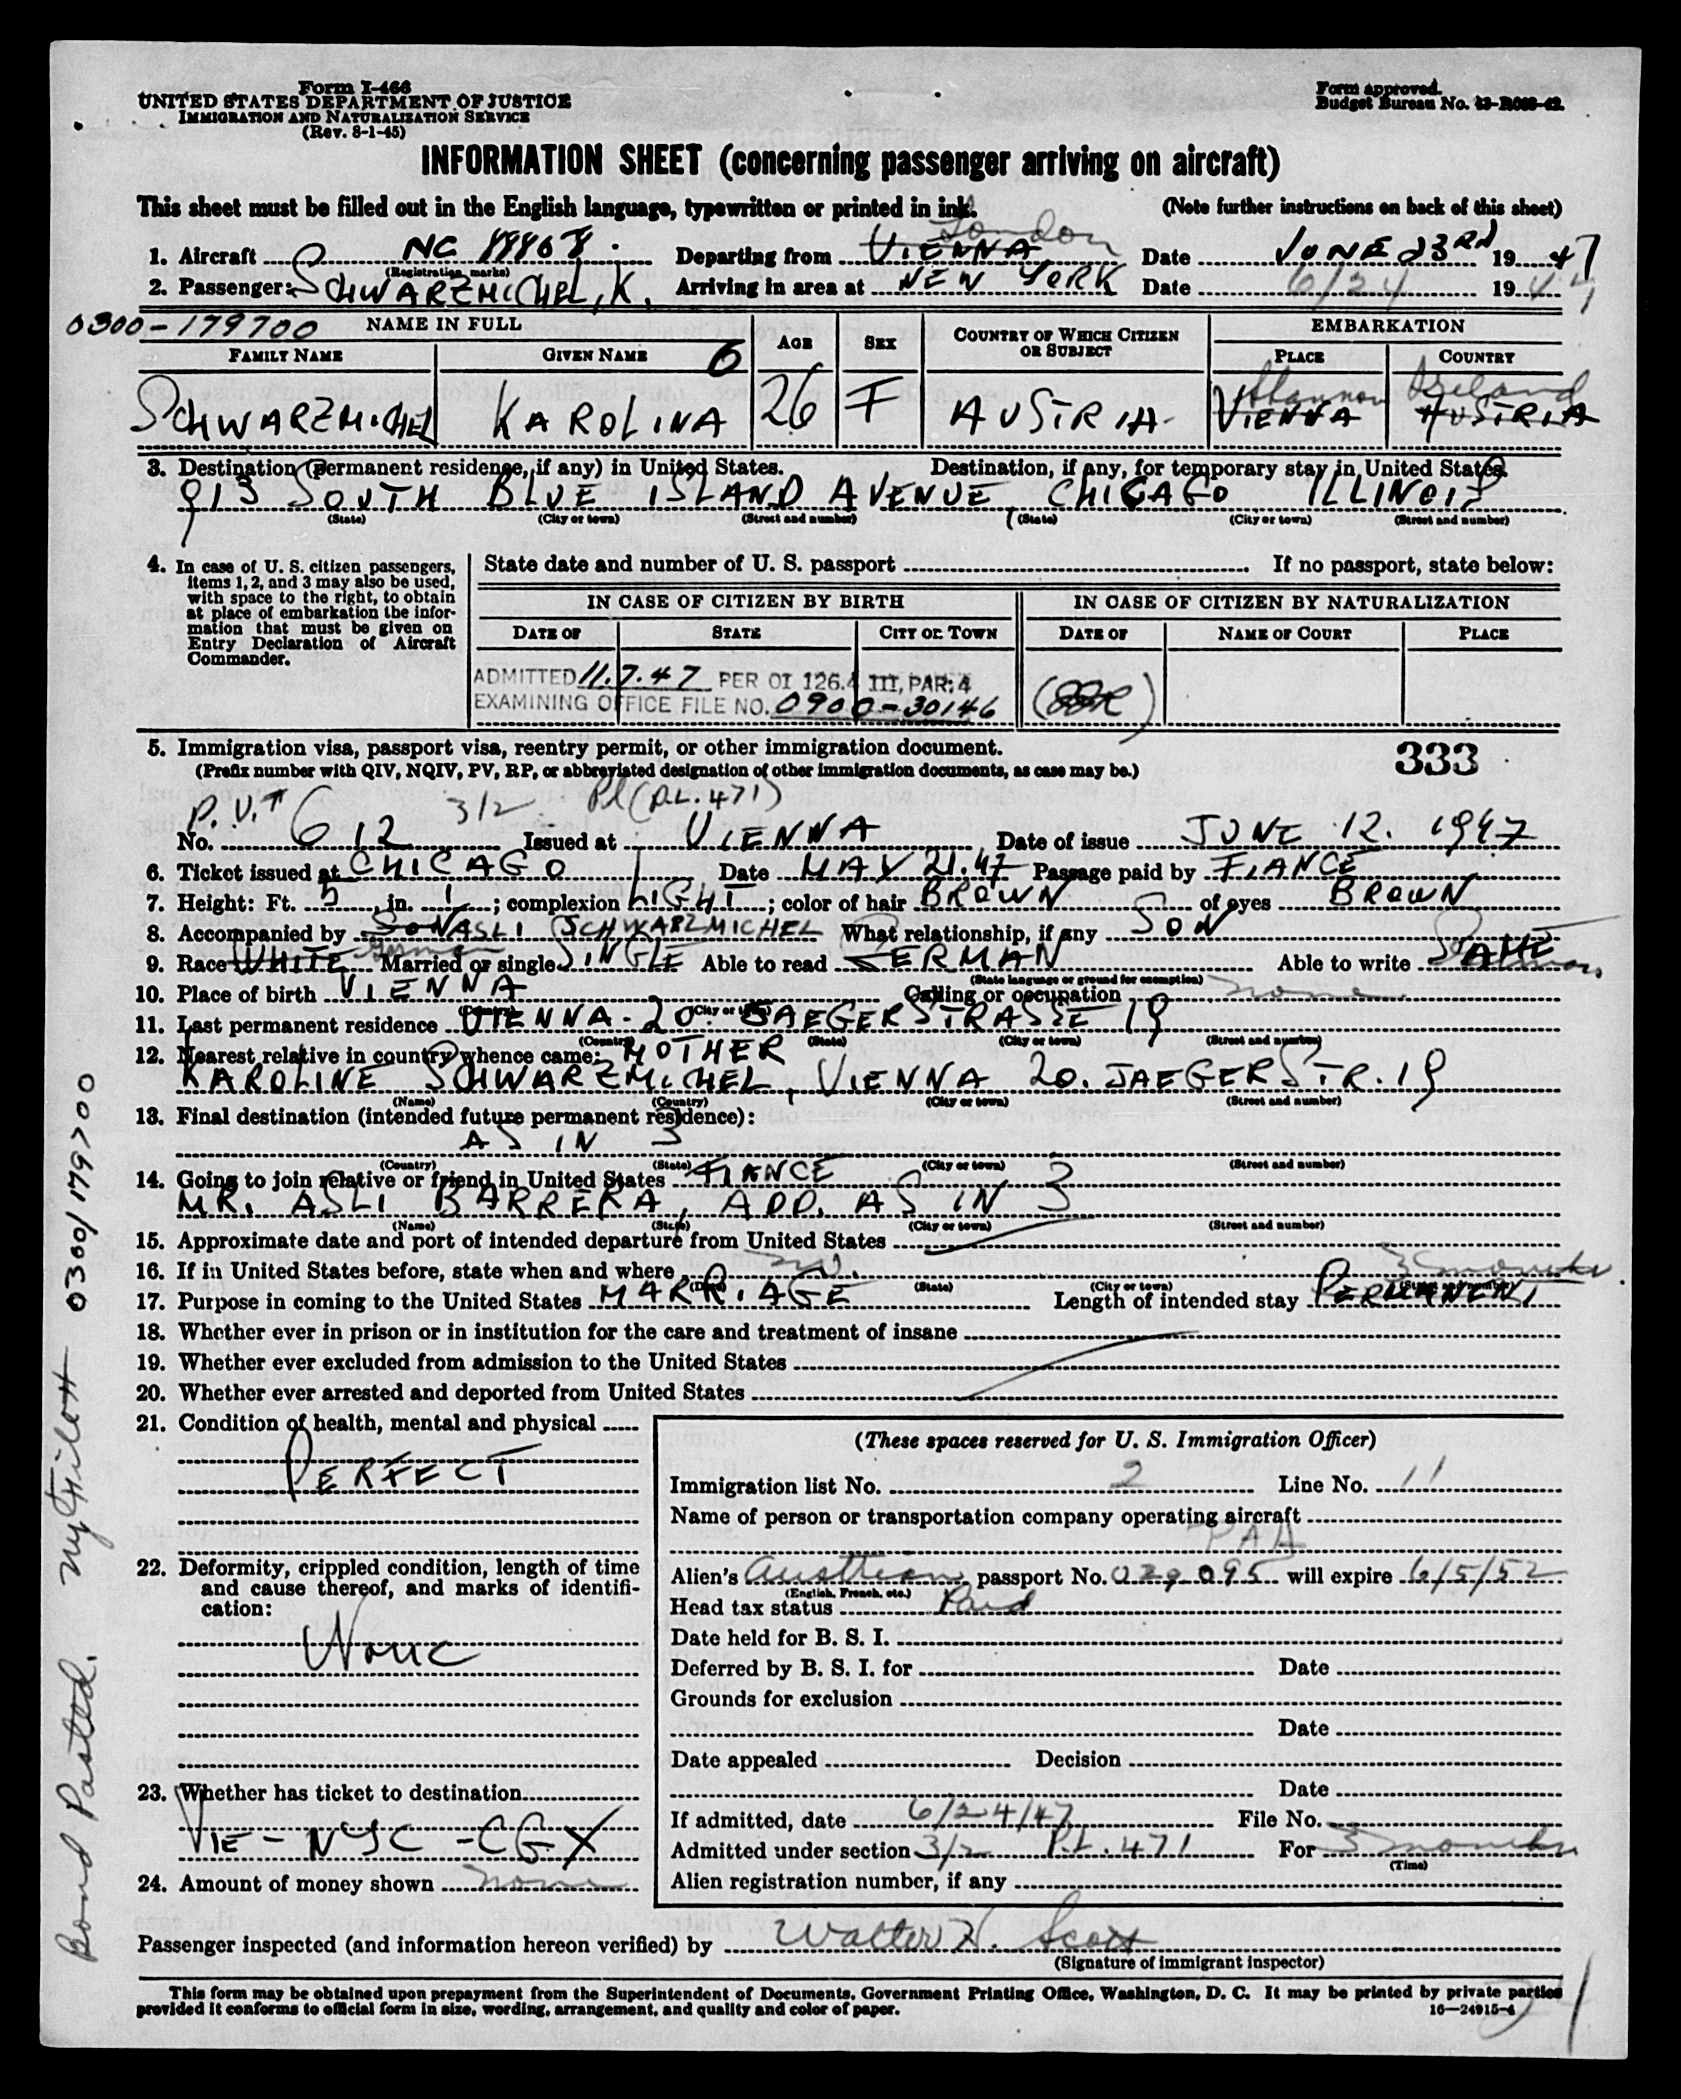 Form I-466
UNITED STATES DEPARTMENT OF JUSTICE
IMMIGRATION AND NATURALIZATION SERVICE
(Rev. 8-1-45)
Form approved.
Budget Bureau No.
INFORMATION SHEET (concerning passenger arriving on aircraft)
This sheet must be filled out in the English language, typewritten or printed in ink.
(Note further instructions on back of this sheet)
London
1. Aircraft NC Departing from VIENNA Date JUNE 23RD 1947
(Registration marks)
2. Passenger: SCHWARZMICHEL, K. Arriving in area at NEW YORK Date 6/24 1947
0300-179700 NAME IN FULL AGE SEX COUNTRY OF WHICH CITIZEN OR SUBJECT EMBARKATION
FAMILY NAME GIVEN NAME 6 PLACE COUNTRY
Shannon Ireland
SCHWARZMICHEL KAROLINA 26 F AUSTRIA VIENNA AUSTRIA
3. Destination (permanent residence, if any) in United States. Destination, if any, for temporary stay in United States.
913 SOUTH BLUE ISLAND AVENUE, CHICAGO ILLINOIS
(State) (City or town) (Street and number) (State) (City or town) (Street and number)
4. In case of U. S. citizen passengers, items 1, 2, and 3 may also be used, with space to the right, to obtain at place of embarkation the information that must be given on Entry Declaration of Aircraft Commander.
State date and number of U. S. passport If no passport, state below:
IN CASE OF CITIZEN BY BIRTH IN CASE OF CITIZEN BY NATURALIZATION
DATE OF STATE CITY OR TOWN DATE OF NAME OF COURT PLACE
ADMITTED 11.7.47 PER OI 126.4 III, PAR. 4
EXAMINING OFFICE FILE NO. 0900-30146
5. Immigration visa, passport visa, reentry permit, or other immigration document. 333
(Prefix number with QIV, NQIV, PV, RP, or abbreviated designation of other immigration documents, as case may be.)
P.V. 3/2 Pl (P.L. 471)
No. 612 Issued at VIENNA Date of issue JUNE 12. 1947
6. Ticket issued at CHICAGO Date MAY 21.47 Passage paid by FIANCE
7. Height: Ft. 5, in. 1; complexion LIGHT; color of hair BROWN of eyes BROWN
8. Accompanied by SON ASLI SCHWARZMICHEL What relationship, if any SON
9. Race WHITE German Married or single SINGLE Able to read GERMAN Able to write SAME German
(State language or ground for exemption)
10. Place of birth VIENNA Calling or occupation none
(Country) (City or town)
11. Last permanent residence VIENNA - 20. JAEGERSTRASSE 19
(Country) (State) (City or town) (Street and number)
12. Nearest relative in country whence came: MOTHER
KAROLINE SCHWARZMICHEL, VIENNA 20. JAEGERSTR. 19
(Name) (Country) (City or town) (Street and number)
13. Final destination (intended future permanent residence):
AS IN 3
(Country) (State) (City or town) (Street and number)
14. Going to join relative or friend in United States FIANCE
MR. ASLI BARRERA, ADD. AS IN 3
(Name) (State) (City or town) (Street and number)
15. Approximate date and port of intended departure from United States
16. If in United States before, state when and where no
(Date) (State) (City or town) (Street and number)
3 months
17. Purpose in coming to the United States MARRIAGE Length of intended stay PERMANENT
18. Whether ever in prison or in institution for the care and treatment of insane
19. Whether ever excluded from admission to the United States
20. Whether ever arrested and deported from United States
21. Condition of health, mental and physical
PERFECT
22. Deformity, crippled condition, length of time and cause thereof, and marks of identification:
None
23. Whether has ticket to destination
VIE - NYC - CGX
24. Amount of money shown none
(These spaces reserved for U. S. Immigration Officer)
Immigration list No. 2 Line No. 11
Name of person or transportation company operating aircraft
PAA
Alien's Austrian passport No. 029095 will expire 6/5/52
(English, French, etc.)
Head tax status Paid
Date held for B. S. I.
Deferred by B. S. I. for Date
Grounds for exclusion
Date
Date appealed Decision
Date
If admitted, date 6/24/47 File No.
Admitted under section 3/2 P.L. 471 For 3 months
(Time)
Alien registration number, if any
Passenger inspected (and information hereon verified) by Walter H. Scott
(Signature of immigrant inspector)
This form may be obtained upon prepayment from the Superintendent of Documents, Government Printing Office, Washington, D. C. It may be printed by private parties
provided it conforms to official form in size, wording, arrangement, and quality and color of paper. 16—24915-4
Bond Posted. NY File # 0300/179700